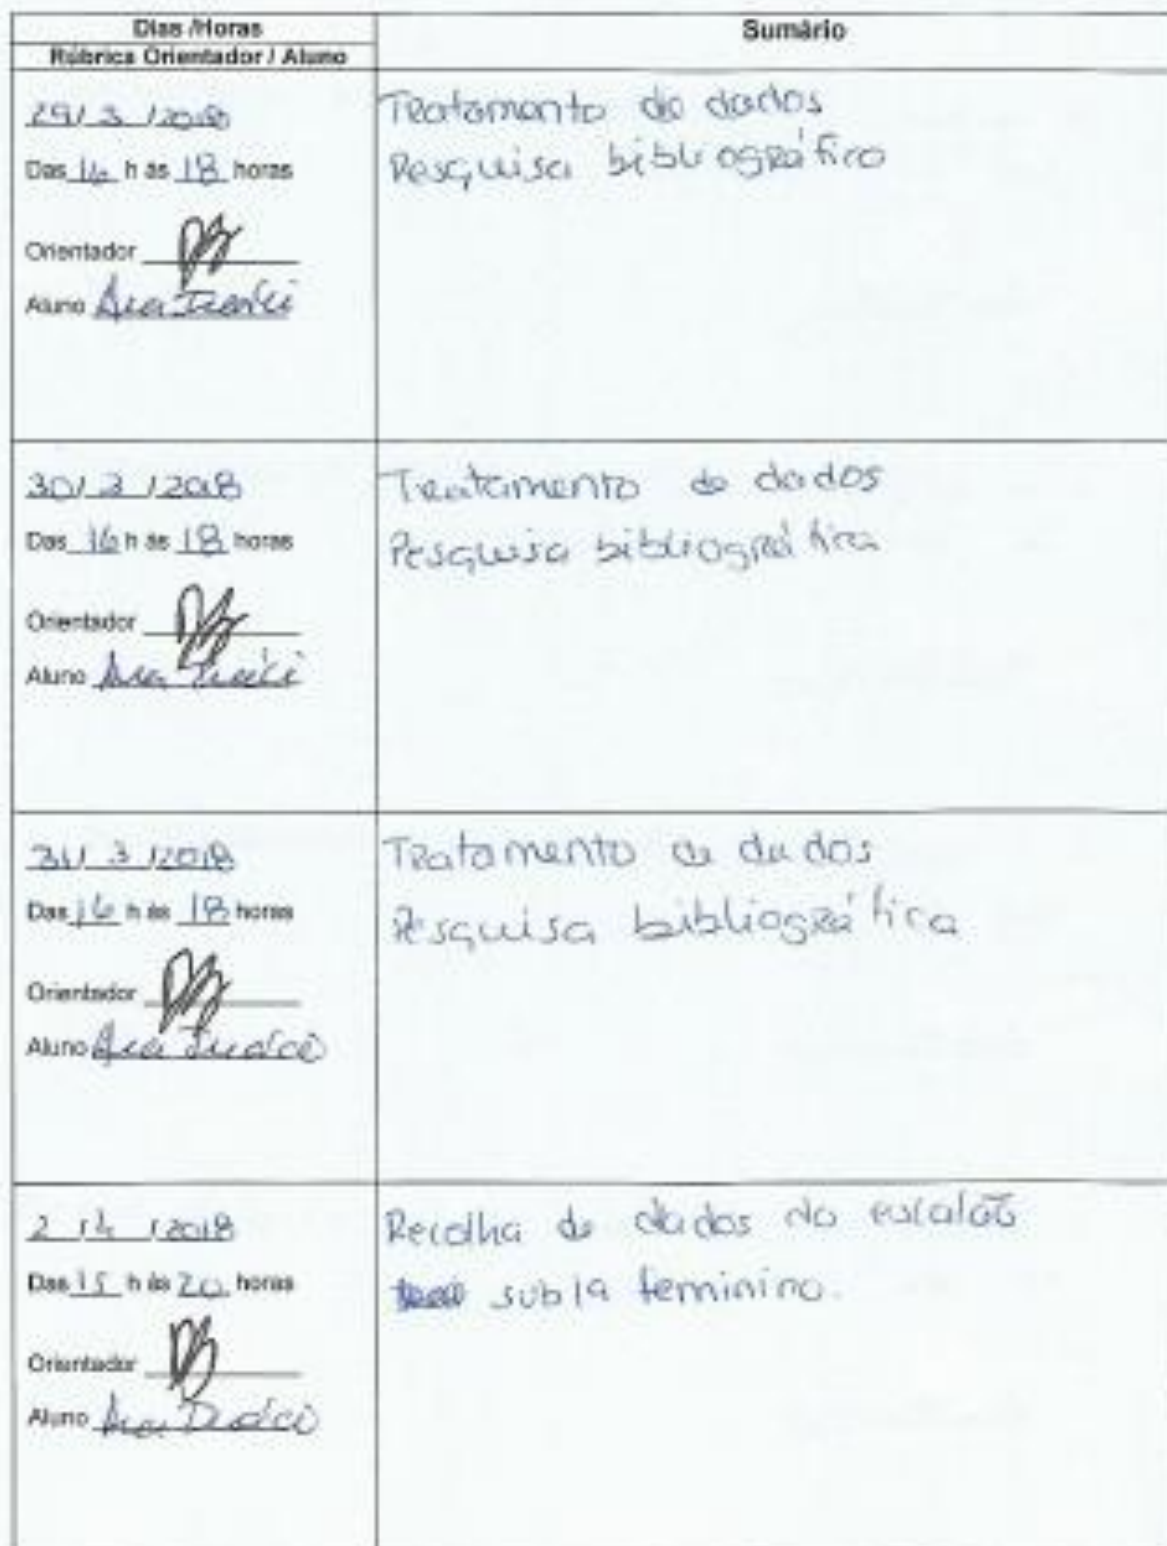 Dias /Horas
Rúbrica Orientador / Aluno
Sumário
29/ 3 /2018
Das 16 h às 18 horas
Orientador
Aluno Ana
Tratamento de dados
Pesquisa bibliográfico
30/ 3 /2018
Das 16 h às 18 horas
Orientador
Aluno Ana
Tratamento de dados
Pesquisa bibliográfica
31/ 3 /2018
Das 16 h às 18 horas
Orientador
Aluno Ana
Tratamento de dados
Pesquisa bibliográfica
2 /4 /2018
Das 15 h às 20 horas
Orientador
Aluno Ana
Recolha de dados do escalão
sub19 feminino.